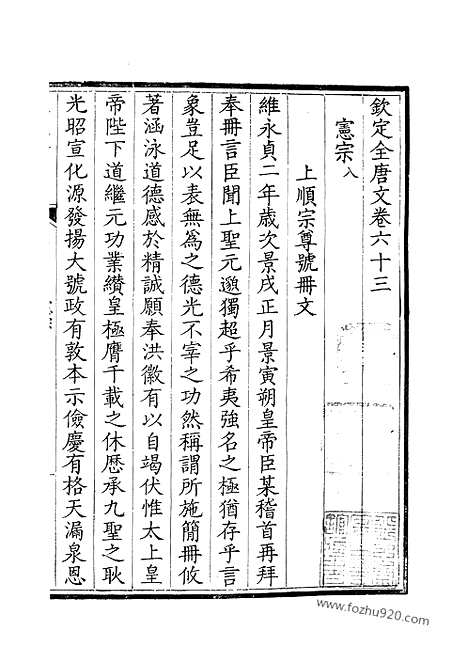 欽定全唐文卷六十三
憲宗八
上順宗尊號冊文
維永貞二年歲次景戌正月景寅朔皇帝臣某稽首再拜
奉冊言臣聞上聖元邈獨超乎希夷強名之極猶存乎言
象豈足以表無為之德光不宰之功然稱謂所施簡冊攸
著涵泳道德感於精誠願奉洪徽有以自竭伏惟太上皇
帝陛下道繼元功業纘皇極膺千載之休歷承九聖之耿
光昭宣化源發揚大號政有敦本示儉慶有格天漏泉恩
www.fozhu920.com